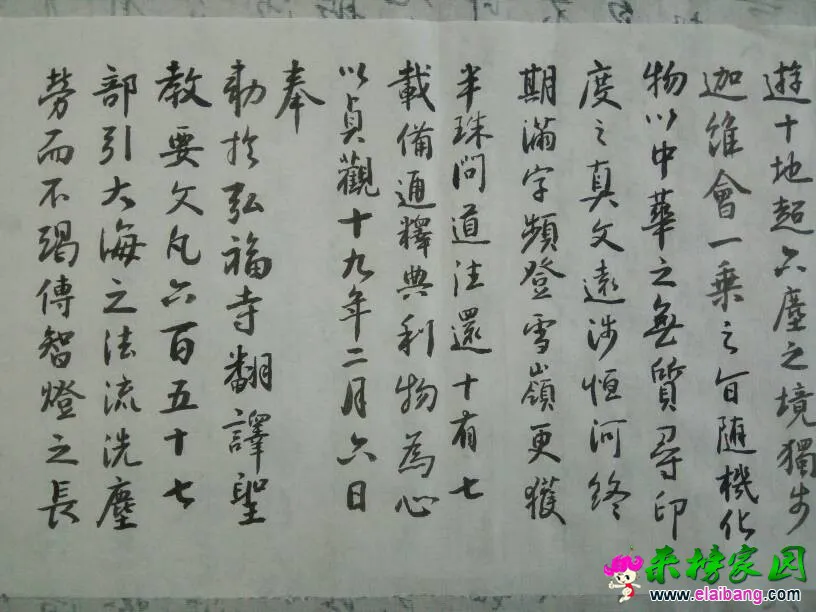 遊十地超六塵之境獨步
迦維會一乘之旨隨機化
物以中華之無質尋印
度之真文遠涉恒河終
期滿字頻登雪嶺更獲
半珠問道往還十有七
載備通釋典利物為心
以貞觀十九年二月六日
奉
勅於弘福寺翻譯聖
教要文凡六百五十七
部引大海之法流洗塵
勞而不竭傳智燈之長
来榜家园
www.elaibang.com